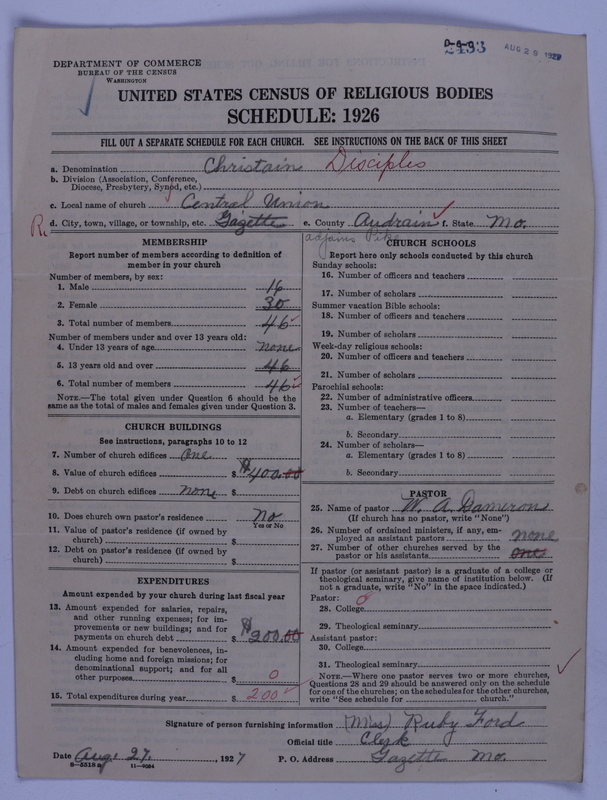 2493 AUG 29 1927
DEPARTMENT OF COMMERCE
BUREAU OF THE CENSUS
WASHINGTON
UNITED STATES CENSUS OF RELIGIOUS BODIES
SCHEDULE: 1926
FILL OUT A SEPARATE SCHEDULE FOR EACH CHURCH. SEE INSTRUCTIONS ON THE BACK OF THIS SHEET
a. Denomination Christain Disciples
b. Division (Association, Conference,
Diocese, Presbytery, Synod, etc.)
c. Local name of church Central Union
d. City, town, village, or township, etc. Gazette e. County Audrain f. State Mo.
adjoins Pike
MEMBERSHIP
Report number of members according to definition of
member in your church
Number of members, by sex:
1. Male 16
2. Female 30
3. Total number of members 46
Number of members under and over 13 years old:
4. Under 13 years of age none
5. 13 years old and over 46
6. Total number of members 46
NOTE.—The total given under Question 6 should be the
same as the total of males and females given under Question 3.
CHURCH BUILDINGS
See instructions, paragraphs 10 to 12
7. Number of church edifices One
8. Value of church edifices $ $400.00
9. Debt on church edifices none $
10. Does church own pastor's residence No
Yes or No
11. Value of pastor's residence (if owned by
church) $
12. Debt on pastor's residence (if owned by
church) $
EXPENDITURES
Amount expended by your church during last fiscal year
13. Amount expended for salaries, repairs,
and other running expenses; for im-
provements or new buildings; and for
payments on church debt $ $200.00
14. Amount expended for benevolences, in-
cluding home and foreign missions; for
denominational support; and for all
other purposes $ 0
15. Total expenditures during year $ 200
CHURCH SCHOOLS
Report here only schools conducted by this church
Sunday schools:
16. Number of officers and teachers
17. Number of scholars
Summer vacation Bible schools:
18. Number of officers and teachers
19. Number of scholars
Week-day religious schools:
20. Number of officers and teachers
21. Number of scholars
Parochial schools:
22. Number of administrative officers
23. Number of teachers—
a. Elementary (grades 1 to 8)
b. Secondary
24. Number of scholars—
a. Elementary (grades 1 to 8)
b. Secondary
PASTOR
25. Name of pastor W. A. Dameron
(If church has no pastor, write "None")
26. Number of ordained ministers, if any, em-
ployed as assistant pastors none
27. Number of other churches served by the
pastor or his assistants one
If pastor (or assistant pastor) is a graduate of a college or
theological seminary, give name of institution below. (If
not a graduate, write "No" in the space indicated.)
Pastor:
28. College 0
29. Theological seminary
Assistant pastor:
30. College
31. Theological seminary
NOTE.—Where one pastor serves two or more churches,
Questions 28 and 29 should be answered only on the schedule
for one of the churches; on the schedules for the other churches,
write "See schedule for church."
Signature of person furnishing information (Miss) Ruby Ford
Official title Clerk
Date Aug. 27, 1927 P. O. Address Gazette Mo.
8-5518 a 11-9024